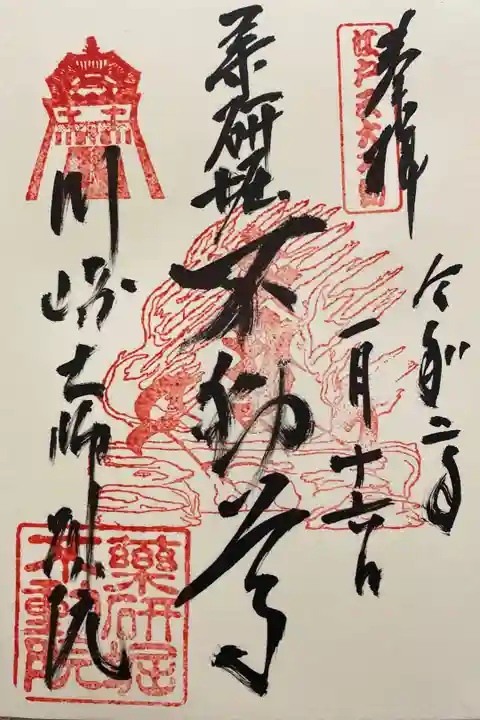 奉拝
令和二年
一月十六日
薬研堀
不動尊
川崎大師別院
薬研堀
不動院